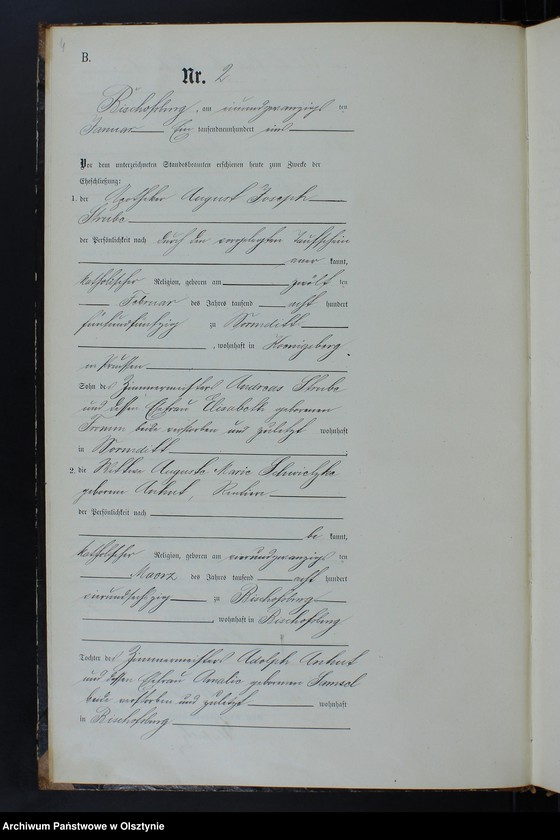 B.
Nr. 2
Bischofsburg, am einundzwanzigsten
Januar Ein tausendneunhundert eins
Vor dem unterzeichneten Standesbeamten erschienen heute zum Zwecke der
Eheschließung:
1. der Apotheker August Joseph
Strube
der Persönlichkeit nach durch den vorgelegten Taufschein
aner kannt,
katholischer Religion, geboren am zwölf ten
Februar des Jahres tausend acht hundert
fünfundfünfzig zu Wormditt
, wohnhaft in Koenigsberg
in Preussen
Sohn des Zimmermeisters Andreas Strube
und dessen Ehefrau Elisabeth geborenen
beide verstorben und zuletzt wohnhaft
in Wormditt
2. die Wittwe Auguste Marie
geborene Anhut, Rentiere
der Persönlichkeit nach
be kannt,
katholischer Religion, geboren am vierundzwanzigsten
Maerz des Jahres tausend acht hundert
vierundsechszig zu Bischofsburg
, wohnhaft in Bischofsburg
Tochter des Zimmermeisters Adolph Anhut
und dessen Ehefrau Amalie geborenen
beide verstorben und zuletzt wohnhaft
in Bischofsburg
Archiwum Państwowe w Olsztynie